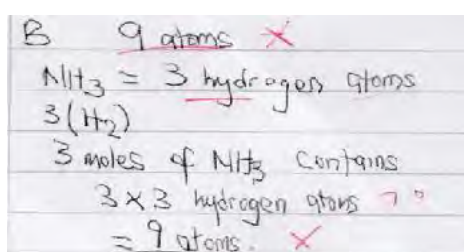 B 9 atoms ✗
NH3 = 3 hydrogen atoms
3(H2)
3 moles of NH3 contains
3×3 hydrogen atoms
= 9 atoms. ✗